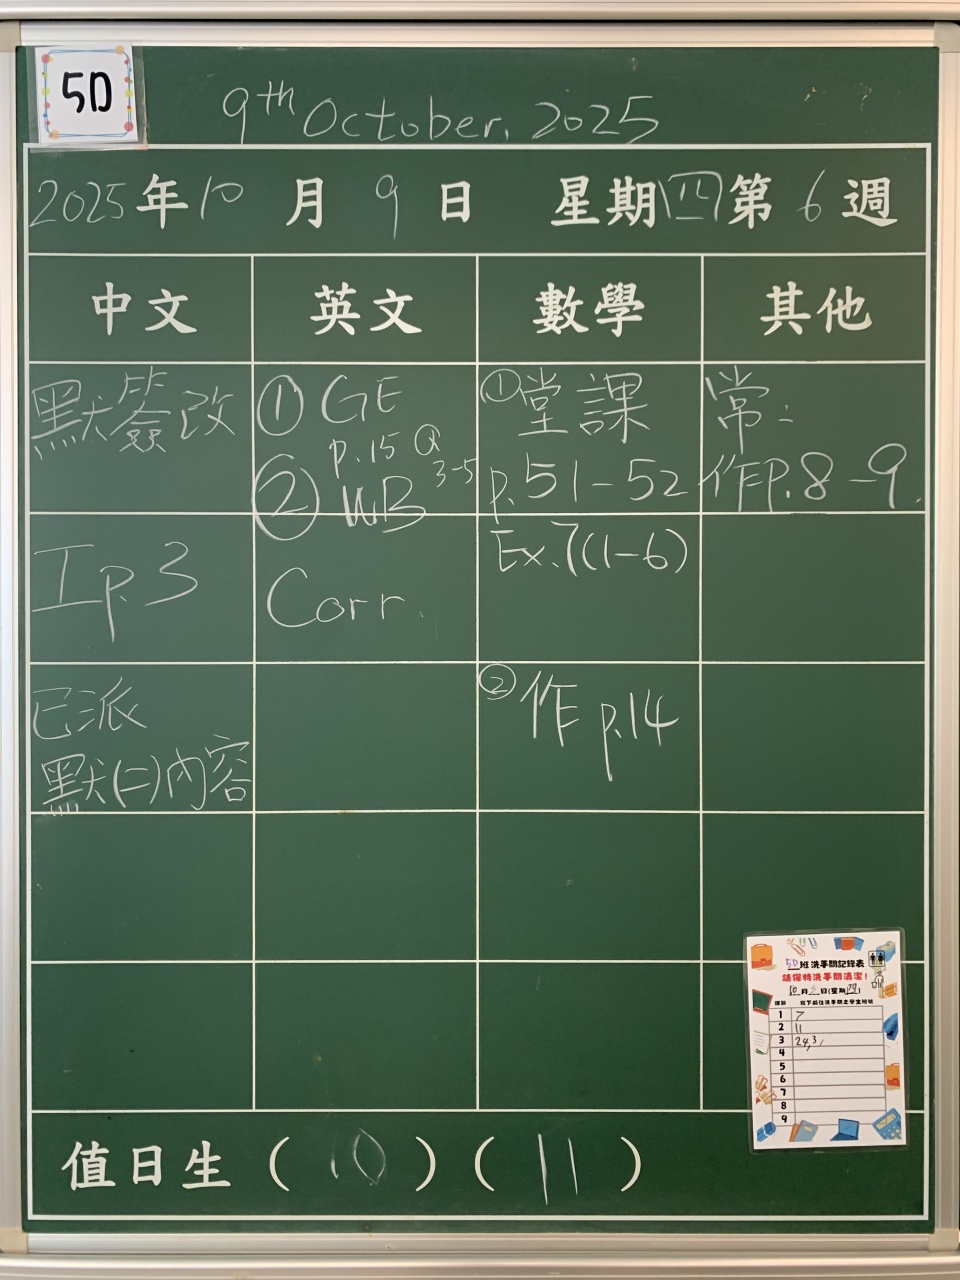 5D
9th October, 2025
2025年10月9日 星期四第6週
中文 英文 數學 其他
默簽改
工p.3
已派
默(二)內容
① GE
p.15 Q
3-5
② WB
Corr.
①堂課
p.51-52
Ex.7(1-6)
②作 p.14
常:
作p.8-9.
5D班洗手間記錄表
請保持洗手間清潔!
10月 日(星期四)
課節 寫下前往洗手間之學生班號
1 7
2 11
3 24,3,
4
5
6
7
8
9
值日生(10)(11)